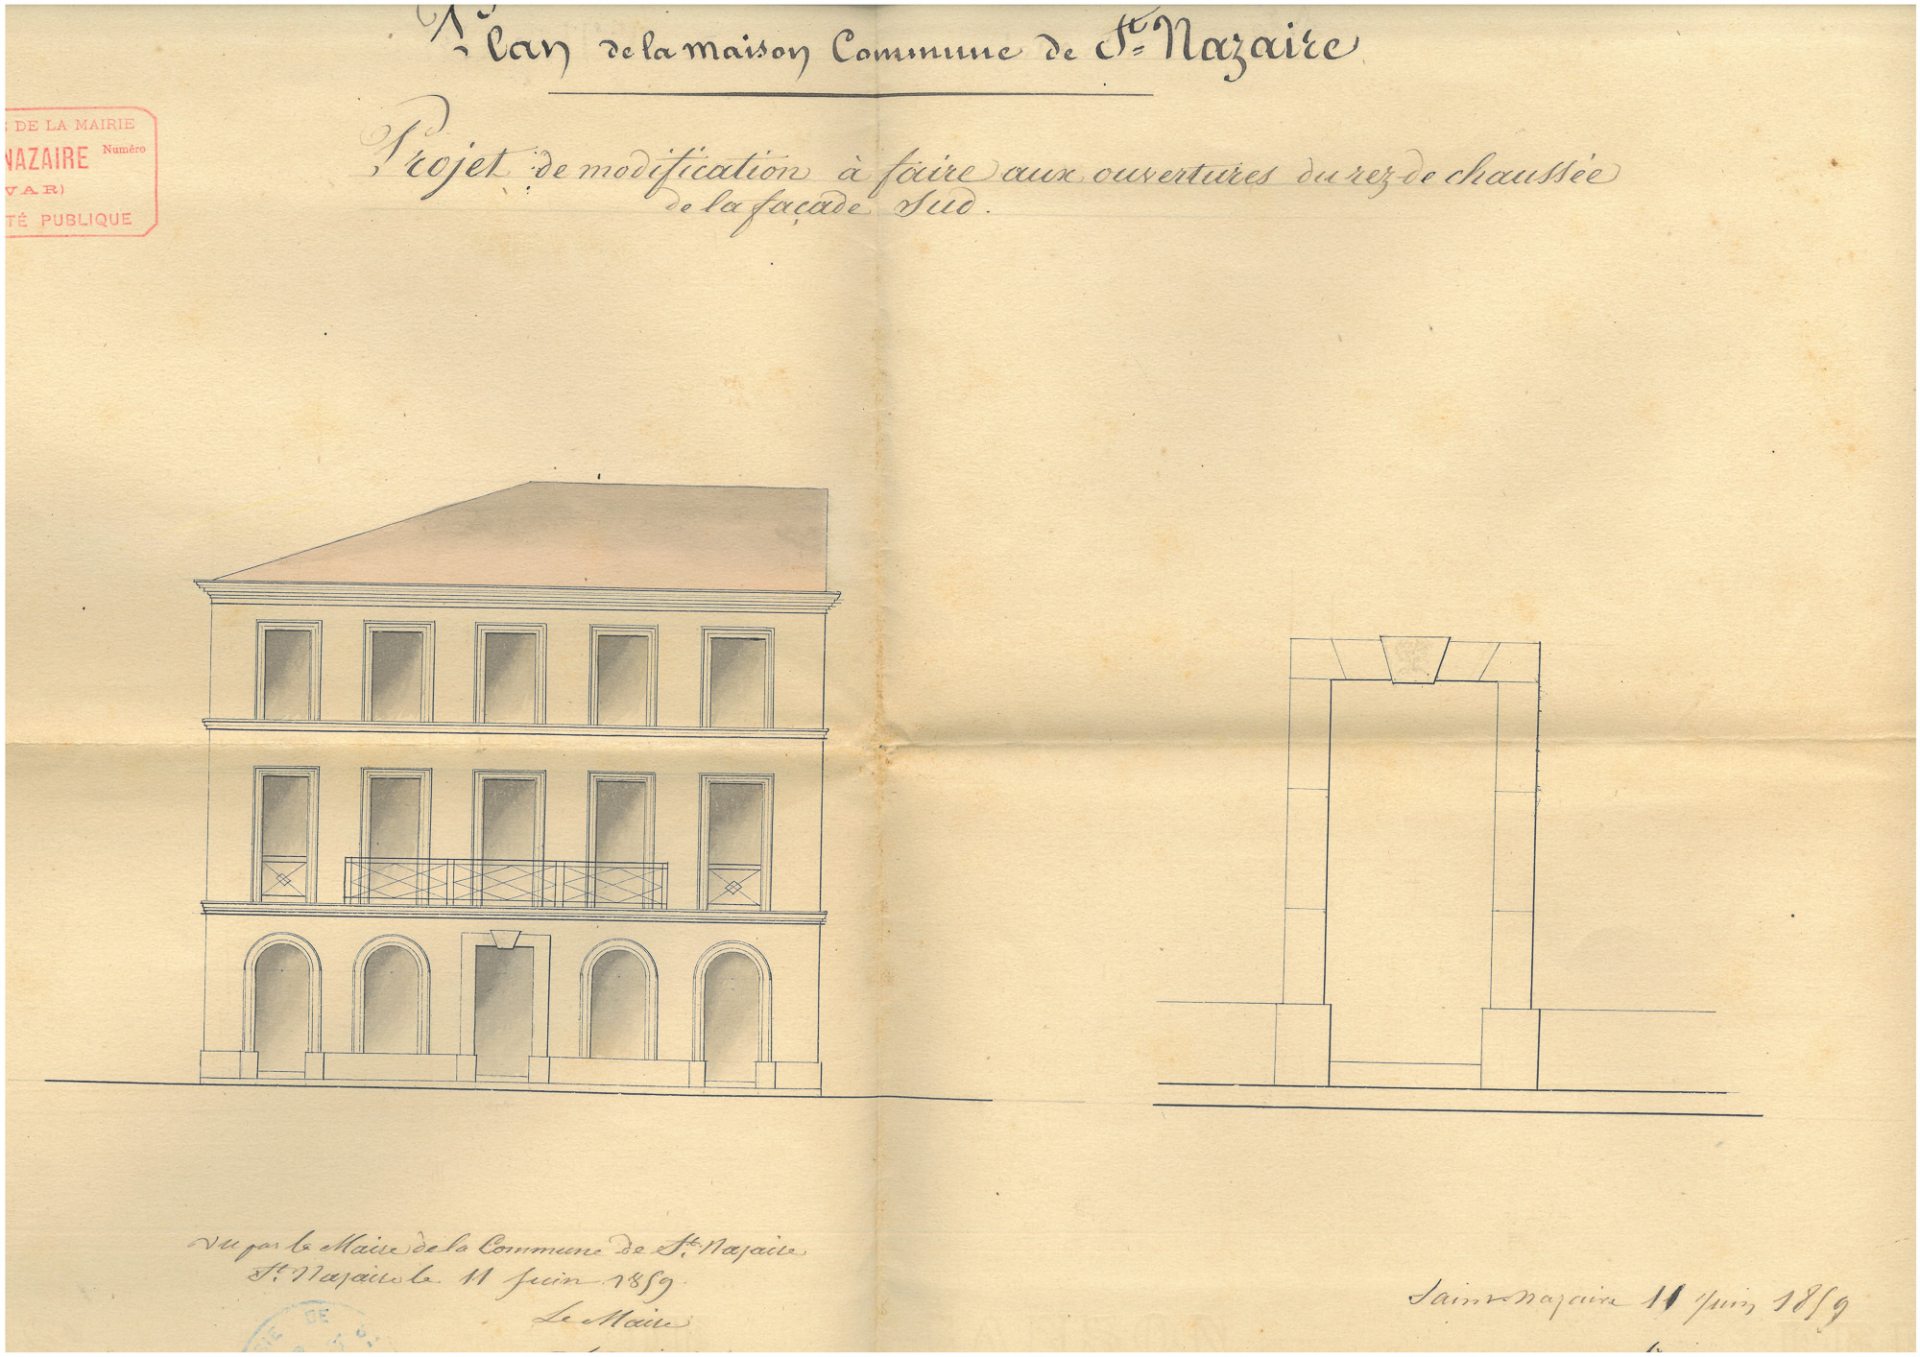 Plan de la maison Commune de St Nazaire
DE LA MAIRIE
NAZAIRE Numéro
VAR)
TÉ PUBLIQUE
Projet de modification à faire aux ouvertures du rez de chaussée
de la façade Sud.
Vu par le Maire de la Commune de St. Nazaire
St. Nazaire le 11 Juin 1859.
Le Maire
DE
Saint-nazaire 11 Juin 1859